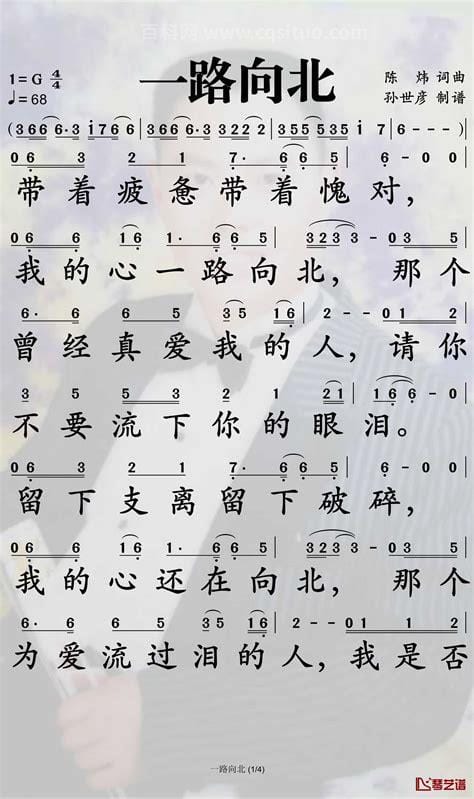 百科网 www.cqsituo.com
一路向北
1=G 4/4
♩=68
陈 炜 词曲
孙世彦 制谱
(3 6 6 6·3 | i 7 6 6 | 3 6 6 6·3 | 3 2 2 2 | 3 5 5 5 3 5 i 7 | 6 - - -) |
0 6 3 2 1 | 7· 6 6 3 5 | 6 - 0 0 |
带着疲惫带着愧对，
0 6 6 6 1 6 | 1· 6 6 5 | 3 2 3 3 - 0 3 5 |
我的心一路向北，那个
6· 6 6 5 3 5 1 6 | 2 - - 0 1 2 |
曾经真爱我的人，请你
3 5 5 3 2 1 | 2 1 6 6 - 0 0 |
不要流下你的眼泪。
0 6 3 2 1 | 7· 6 6 3 5 | 6 - 0 0 |
留下支离留下破碎，
0 6 6 6 1 6 | 1· 6 6 5 | 3 2 3 3 - 0 3 5 |
我的心还在向北，那个
6· 6 6 5 3 5 1 6 | 2 - - 0 1 1 2 |
为爱流过泪的人，我是否
一路向北 (1/4)
琴艺谱